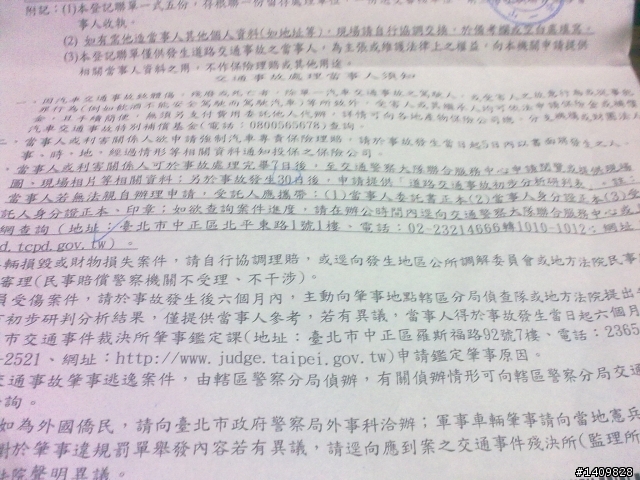 附記：(1)本登記聯單一式五份，存根聯一份留存處理單位，
事人收執。
(2) 如有需他造當事人其他個人資料(如地址等)，現場請自行協調交換，於備考欄或空白處填寫。
(3)本登記聯單僅供發生道路交通事故之當事人，為主張或維護法律上之權益，向本機關申請提供
相關當事人資料之用，不作保險理賠或其他用途。
交通事故處理當事人須知
一、因汽車交通事故致體傷、殘廢或死亡者，除單一汽車交通事故之駕駛人，或受害人之故意行為或從事犯
罪行為(例如飲酒不能安全駕駛而駕駛汽車)等所致外，受害人或其繼承人均可依法申請保險金或補償
金，且手續簡便，無須另支付費用委託他人代辦，詳情可向各地產物保險公司總、分支機構或財團法人
汽車交通事故特別補償基金(電話：0800565678)查詢。
二、當事人或利害關係人欲申請強制汽車責任保險理賠，請於事故發生當日起5日內以書面將發生之人、
事、時、地、經過情形等相關資料通知投保之保險公司。
當事人或利害關係人可於事故處理完畢7日後，至交通警察大隊聯合服務中心申請閱覽或提供現場
圖、現場相片等相關資料；另於事故發生30日後，申請提供「道路交通事故初步分析研判表」。註：
當事人若無法親自辦理申請，受託人應攜帶：(1)當事人委託書正本(2)當事人身分證正本(3)受
託人身分證正本、印章；如欲查詢案件進度，請在辦公時間內逕向交通警察大隊聯合服務中心或
網查詢（地址：臺北市中正區北平東路1號1樓、電話：02-23214666轉1010-1012；網址
d.tcpd.gov.tw）。
輛損毀或財物損失案件，請自行協調理賠，或逕向發生地區公所調解委員會或地方法院民事
審理(民事賠償警察機關不受理、不干涉)。
員受傷案件，請於事故發生後六個月內，主動向肇事地點轄區分局偵查隊或地方法院提出
初步研判分析結果，僅提供當事人參考，若有異議，當事人得於事故發生當日起六個月
市交通事件裁決所肇事鑑定課(地址：臺北市中正區羅斯福路92號7樓、電話：2365
-2521、網址：http://www.judge.taipei.gov.tw)申請鑑定肇事原因。
交通事故肇事逃逸案件，由轄區警察分局偵辦，有關偵辦情形可向轄區警察分局交通
詢。
如為外國僑民，請向臺北市政府警察局外事科洽辦；軍事車輛肇事請向當地憲兵
對於肇事違規罰單舉發內容若有異議，請逕向應到案之交通事件裁決所(監理所
法院聲明異議。
#1409828